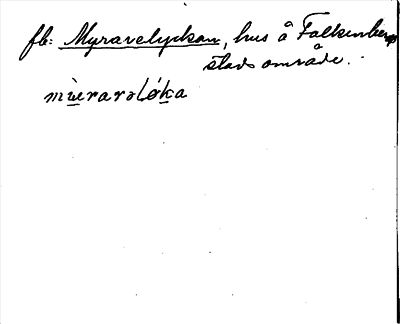 fb: Myravelyckan, hus å Falkenbergs
stads område.
mùeravaløka